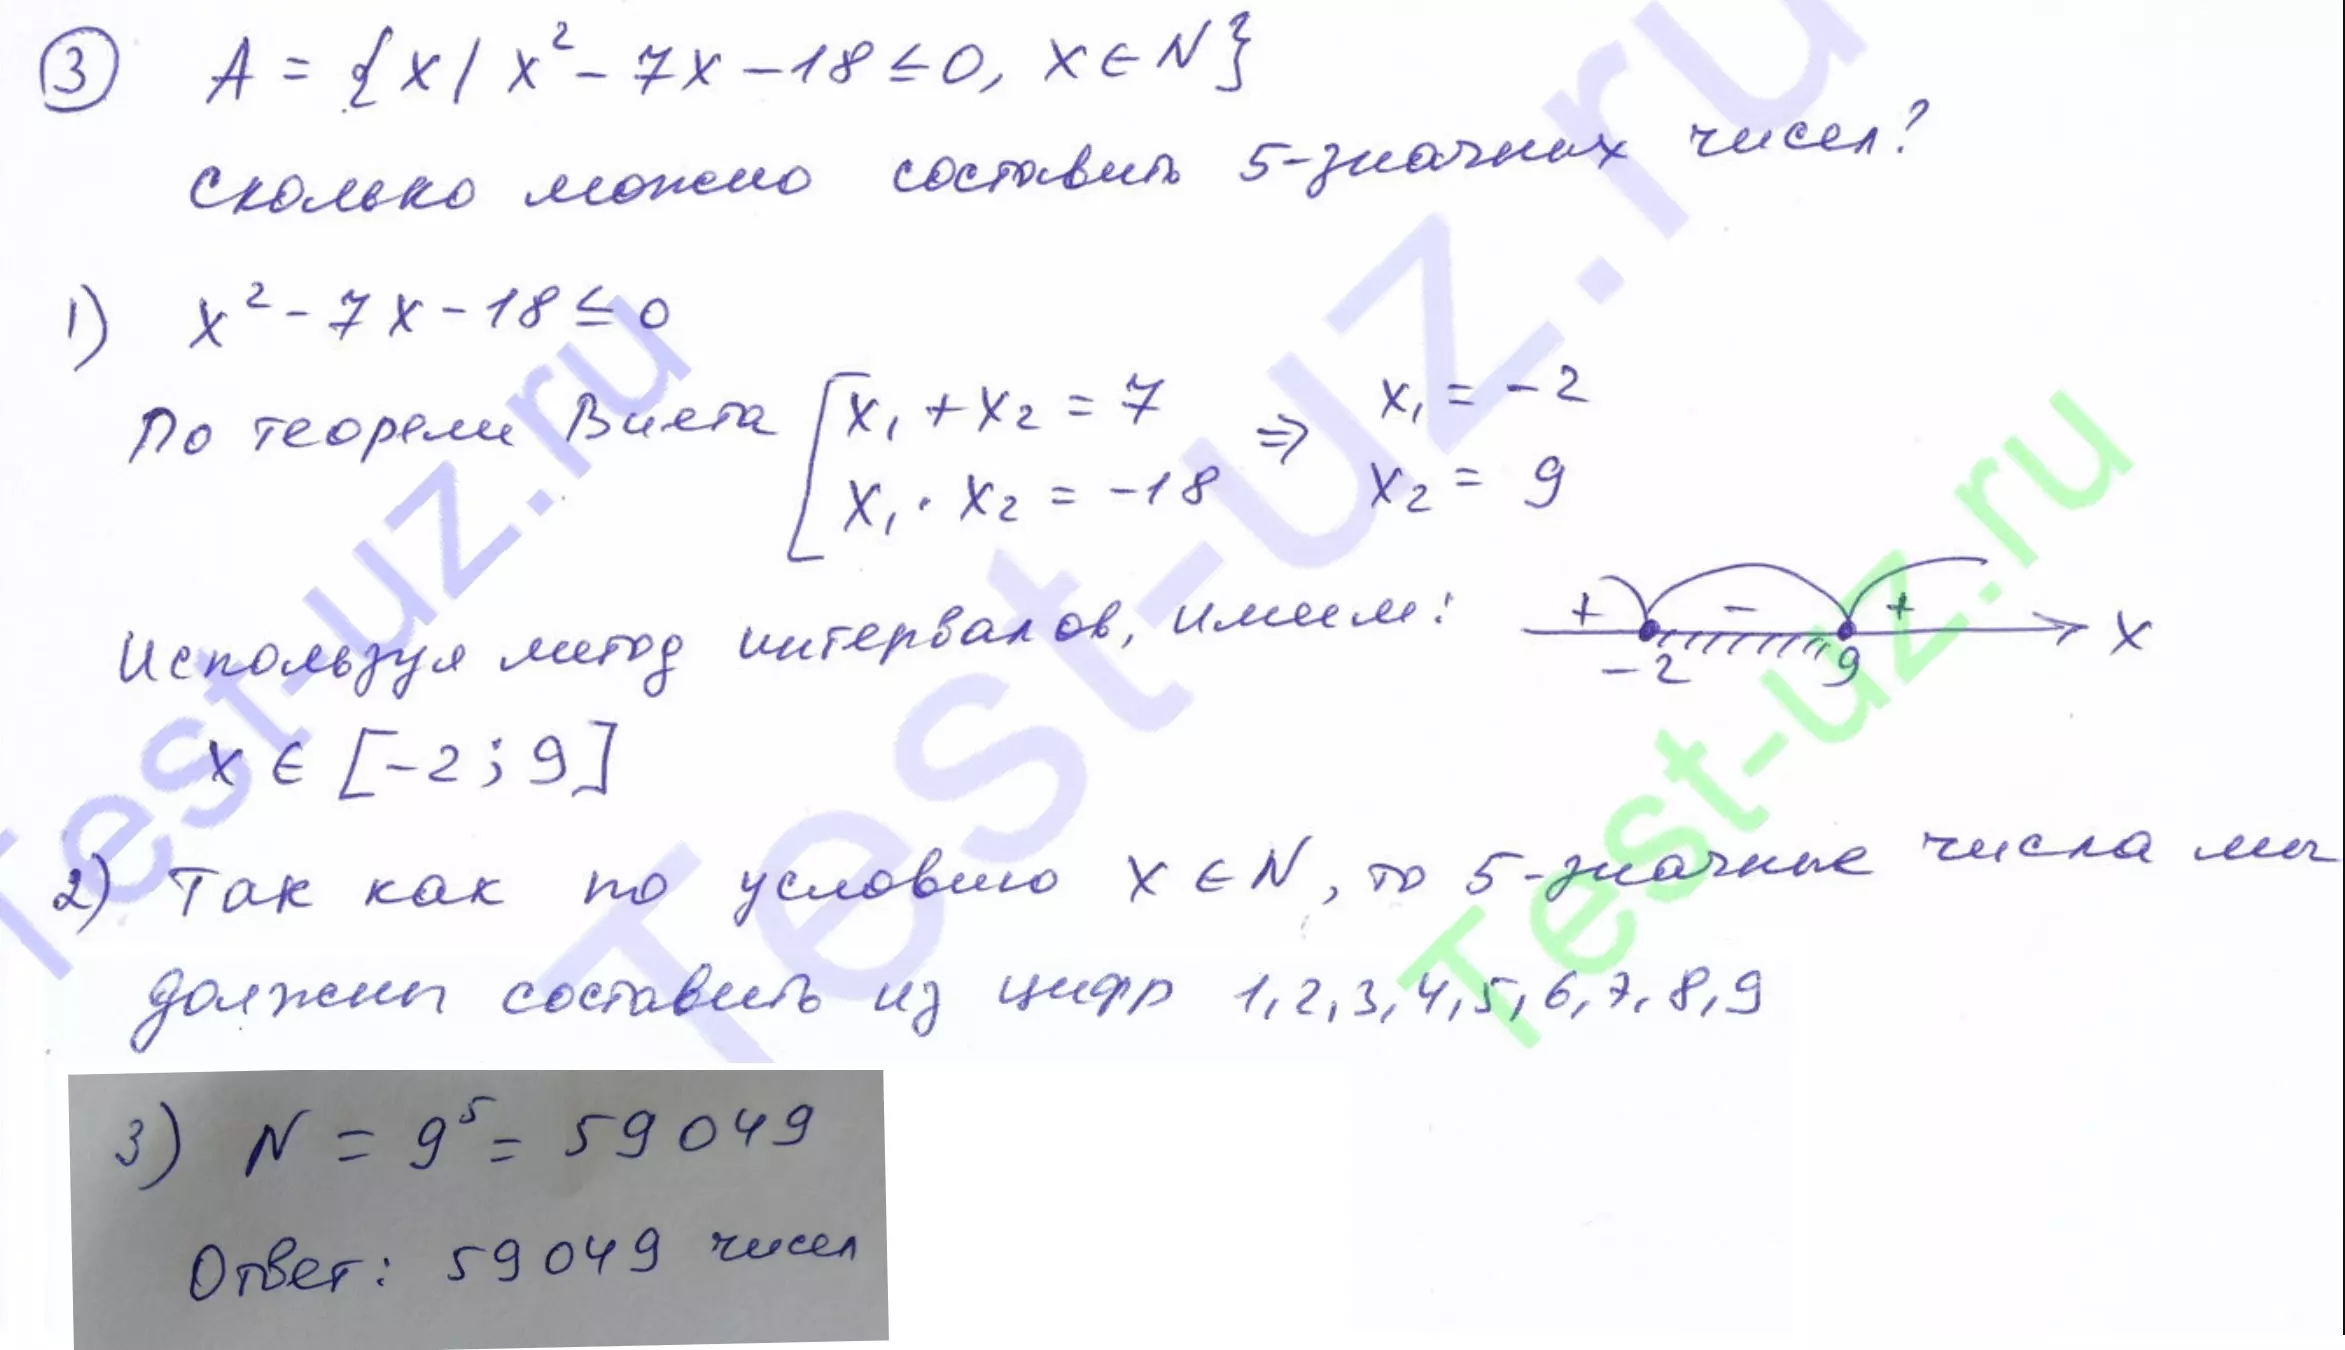 ③ A = {x / x² - 7x - 18 ≤ 0, x ∈ N}
Сколько можно составить 5-значных чисел?
1) x² - 7x - 18 ≤ 0
По теореме Виета [x₁ + x₂ = 7 ⇒ x₁ = -2
x₁ · x₂ = -18 x₂ = 9
Используя метод интервалов, имеем:
+ - +
-2 9 x
x ∈ [-2; 9]
2) Так как по условию x ∈ N, то 5-значные числа мы
должны составить из цифр 1, 2, 3, 4, 5, 6, 7, 8, 9
3) N = 9⁵ = 59049
Ответ: 59049 чисел
Test-uz.ru
Test-uz.ru
Test-uz.ru